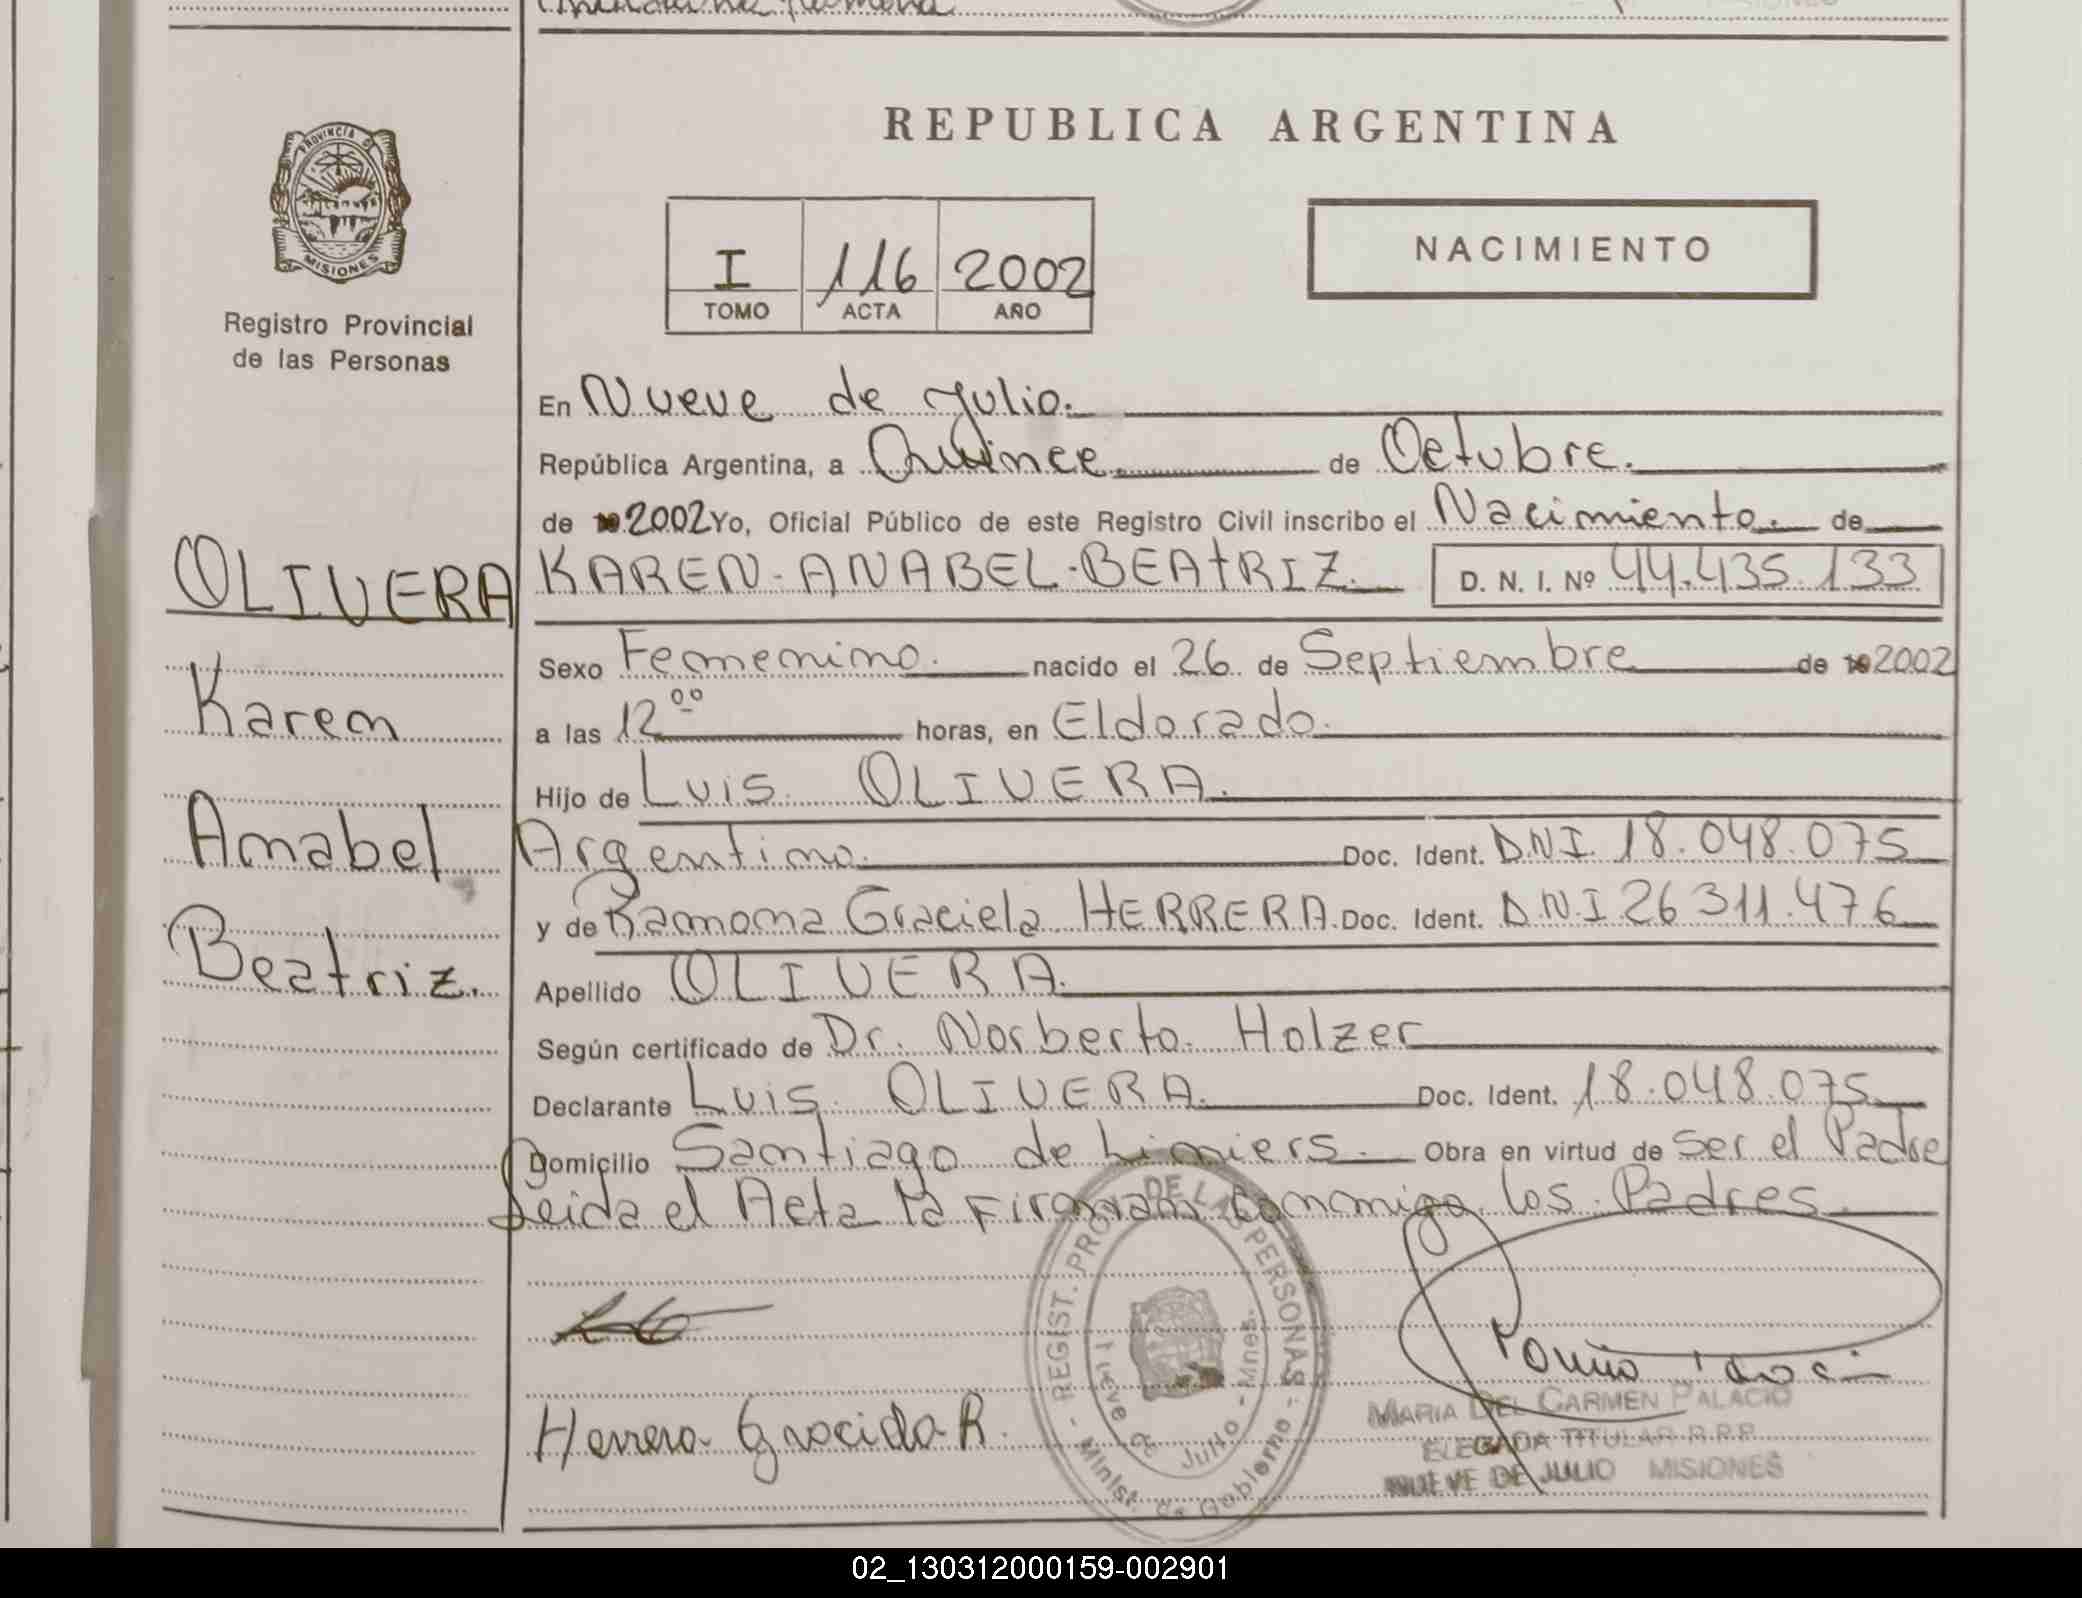 PROVINCIA DE
MISIONES
Registro Provincial
de las Personas
OLIVERA
Karen
Anabel
Beatriz.
REPUBLICA ARGENTINA
I 116 2002
TOMO ACTA AÑO
NACIMIENTO
En Nueve de Julio.
República Argentina, a Quince de Octubre.
de 2002 Yo, Oficial Público de este Registro Civil inscribo el Nacimiento. de
KAREN-ANABEL-BEATRIZ. D. N. I. Nº 44.435.133
Sexo Femenino. nacido el 26 de Septiembre de 2002
a las 12ºº horas, en Eldorado.
Hijo de Luis OLIVERA.
Argentino. Doc. Ident. D.N.I. 18.048.075
y de Ramona Graciela HERRERA. Doc. Ident. D.N.I 26 311.476
Apellido OLIVERA.
Según certificado de Dr. Norberto Holzer
Declarante Luis OLIVERA. Doc. Ident. 18.048.075
Domicilio Santiago de Liniers. Obra en virtud de Ser el Padre
Leida el Acta la Firman conmigo los Padres
REGIST. PROV. DE LAS PERSONAS
Nueve de Julio - Mnes.
Minist. de Gobierno
Herrera Gracida R.
MARIA DEL CARMEN PALACIO
DELEGADA TITULAR R.P.P.
NUEVE DE JULIO MISIONES
02_130312000159-002901